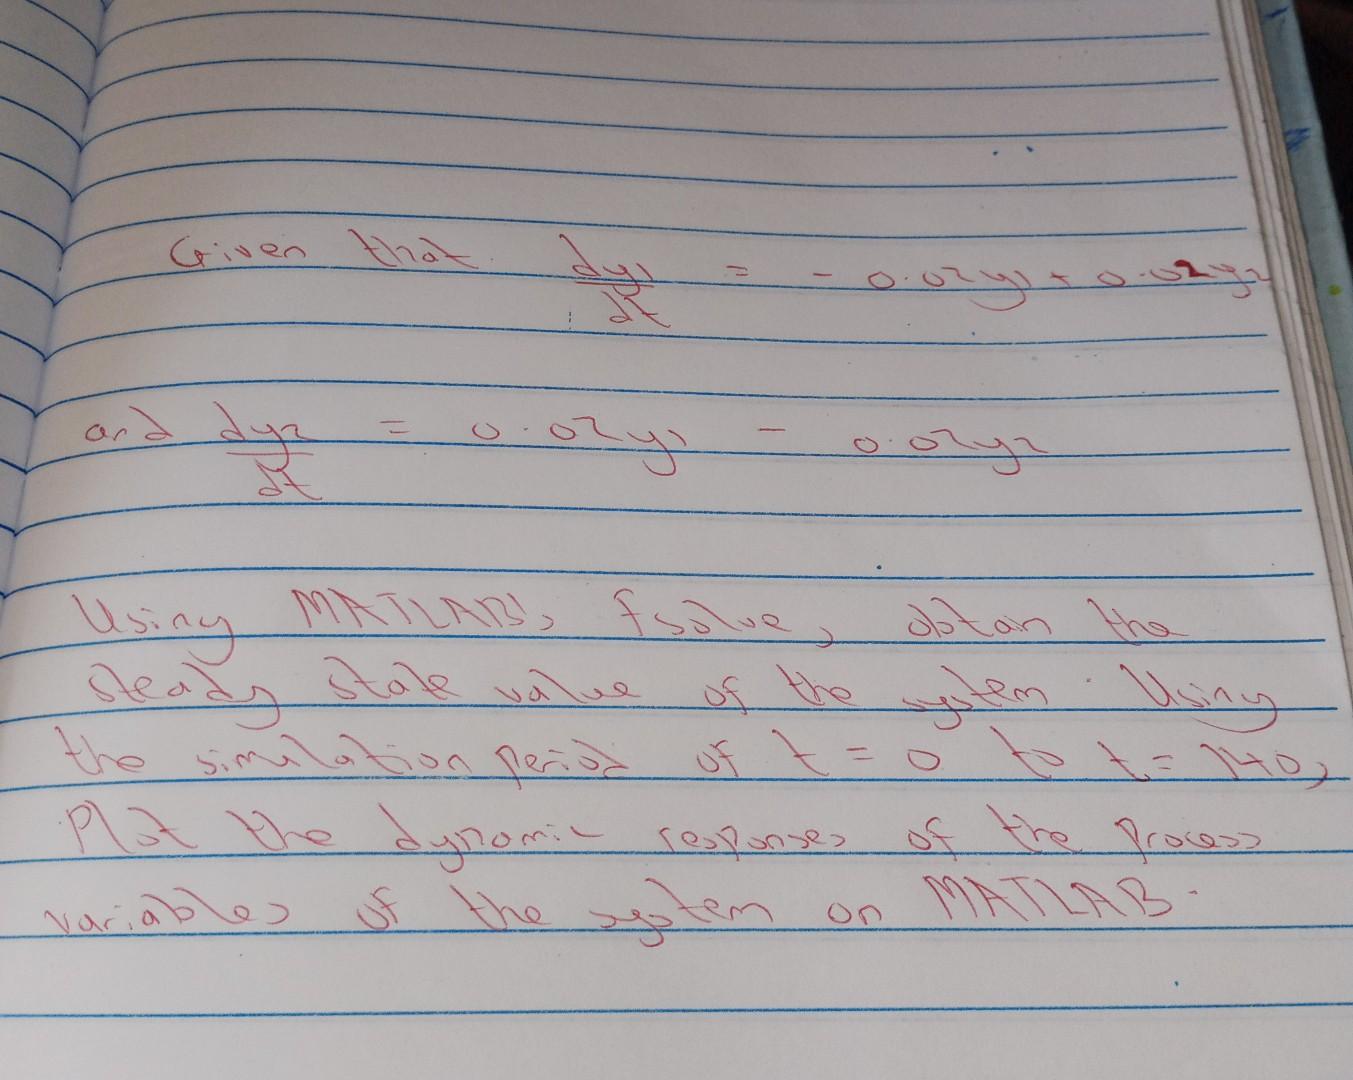 Given that dy1/dt = - 0.02y1 + 0.02y2
and dy2/dt = 0.02y1 - 0.02y2
Using MATLAB's fsolve, obtain the
steady state value of the system. Using
the simulation period of t = 0 to t = 140,
Plot the dynamic responses of the process
variables of the system on MATLAB.